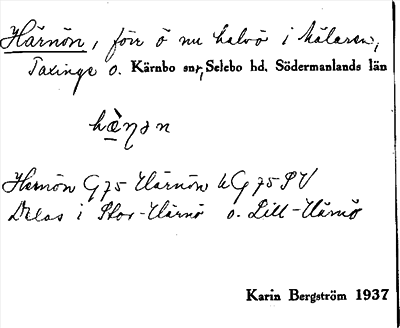 Härnön, förr ö nu halvö i Mälaren,
Taxinge o. Kärnbo snr, Selebo hd, Södermanlands län
Hernön G 75 Härnön
Delas i Stor-Härnö o. Lill-Härnö
Karin Bergström 1937